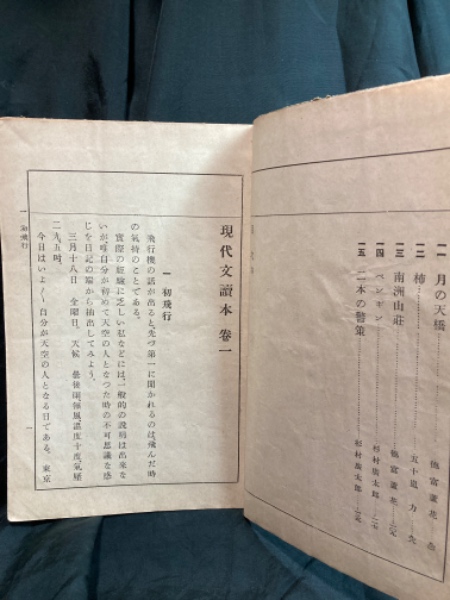 一一 月の天橋 德富蘆花
一二 柿 五十嵐力
一三 南洲山莊 德富蘆花
一四 ペンギン 杉村廣太郎
一五 二本の警策 杉村廣太郎
現代文讀本 卷一
一 初飛行
飛行機の話が出ると、先づ第一に聞かれるのは、飛んだ時
の氣持のことである。
實際の經驗に乏しい私などには、一般的の說明は出來な
いが、唯自分が初めて天空の人となつた時の不可思議な感
じを日記の端から抽出して みよう。
三月十八日 金曜日。天候 溫度十度、氣壓
二九、五吋。
今日はいよ〳〵自分が天空の人となる日である。東京
一 初飛行
一